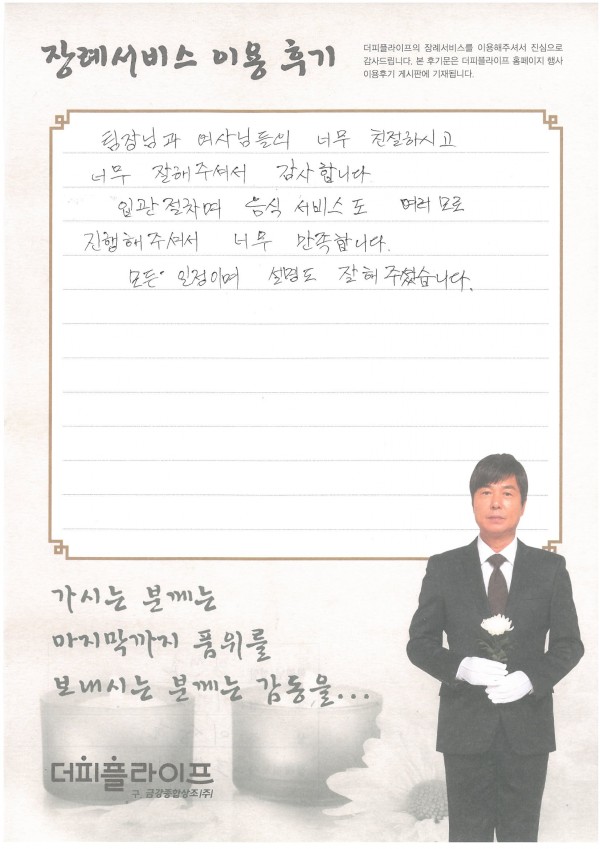 장례서비스 이용 후기
더피플라이프의 장례서비스를 이용해주셔서 진심으로
감사드립니다. 본 후기문은 더피플라이프 홈페이지 행사
이용후기 게시판에 기재됩니다.
팀장님과 여사님들의 너무 친절하시고
너무 잘해주셔서 감사합니다.
입관절차며 음식 서비스도 여러모로
진행해주셔서 너무 만족합니다.
모든 일정이며 설명도 잘해주셨습니다.
가시는 분께는
마지막까지 품위를
보내시는 분께는 감동을...
더피플라이프
구. 금강종합상조(주)